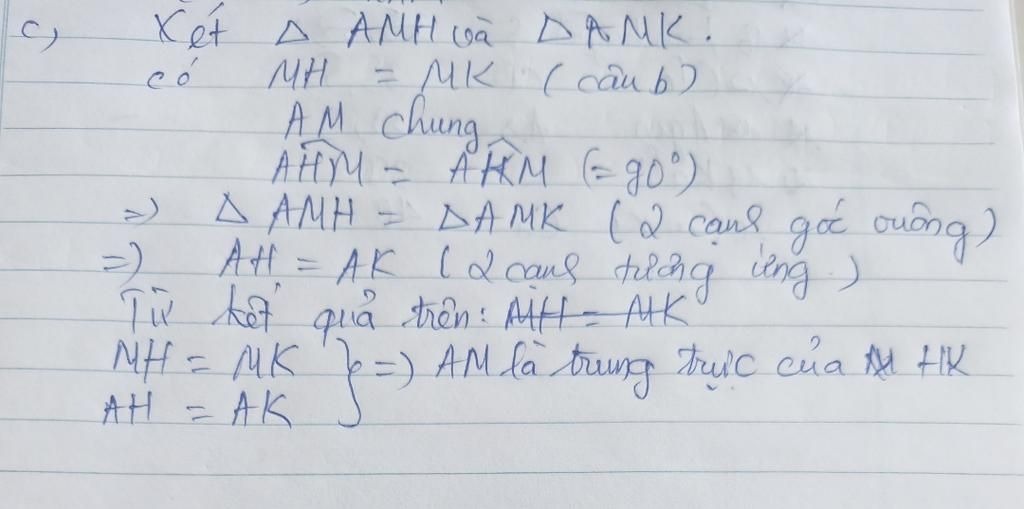 c, Xét Δ AMH và Δ AMK.
có MH = MK ( câu b)
AM chung
AHM = AKM (= 90°)
=) Δ AMH = Δ AMK ( 2 cạnh góc vuông)
=) AH = AK ( 2 cạnh tương ứng )
Từ kết quả trên: MH = MK
MH = MK } =) AM là trung trực của HK
AH = AK